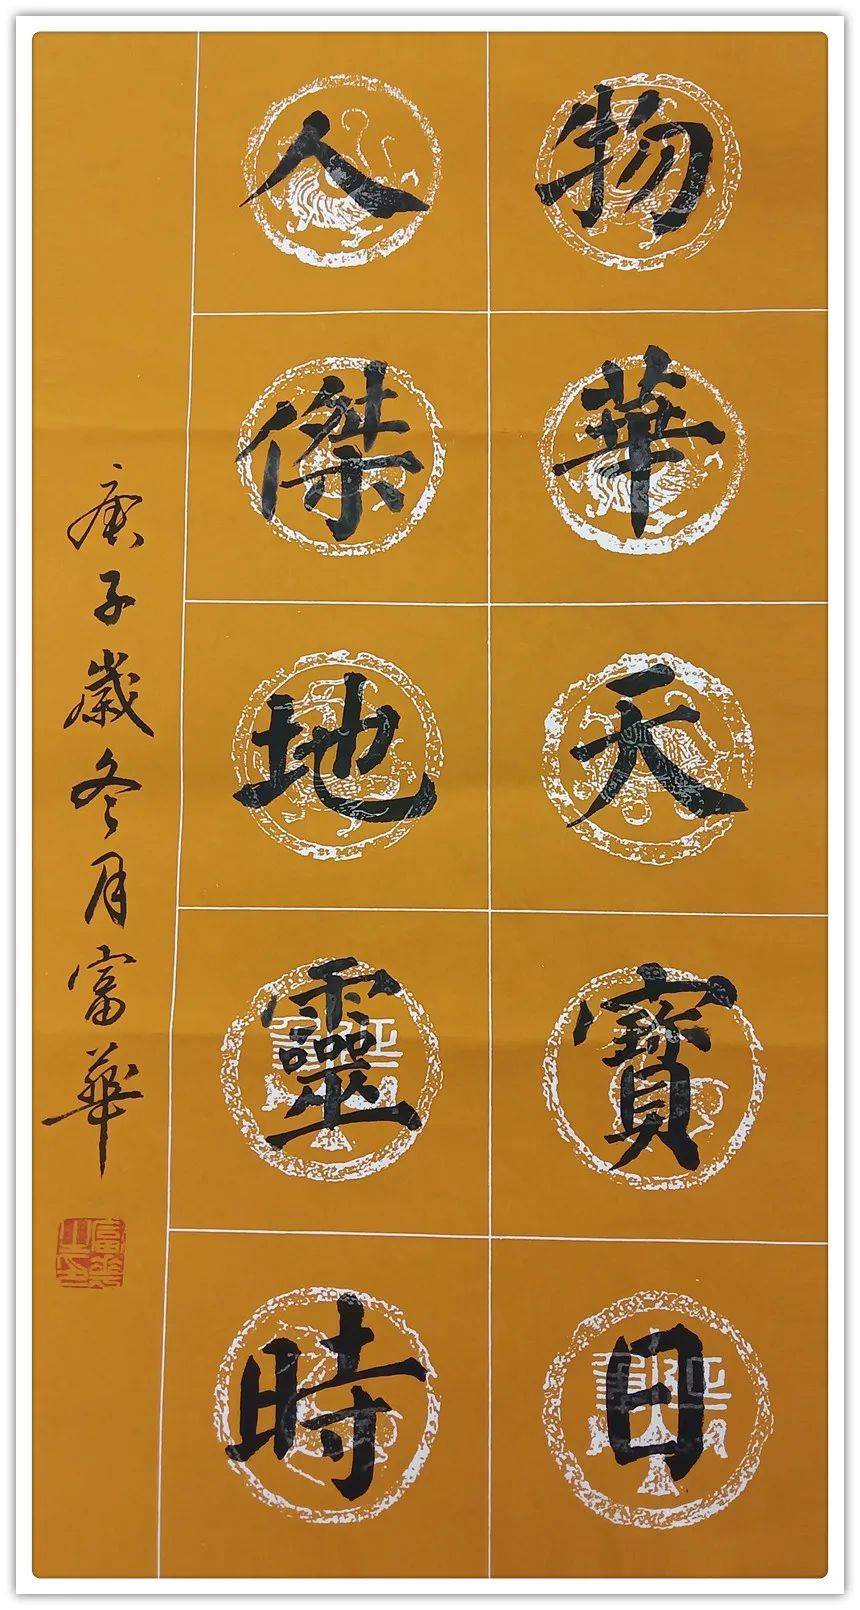 物華天寶日
人傑地靈時
庚子歲冬月富華
富華之印